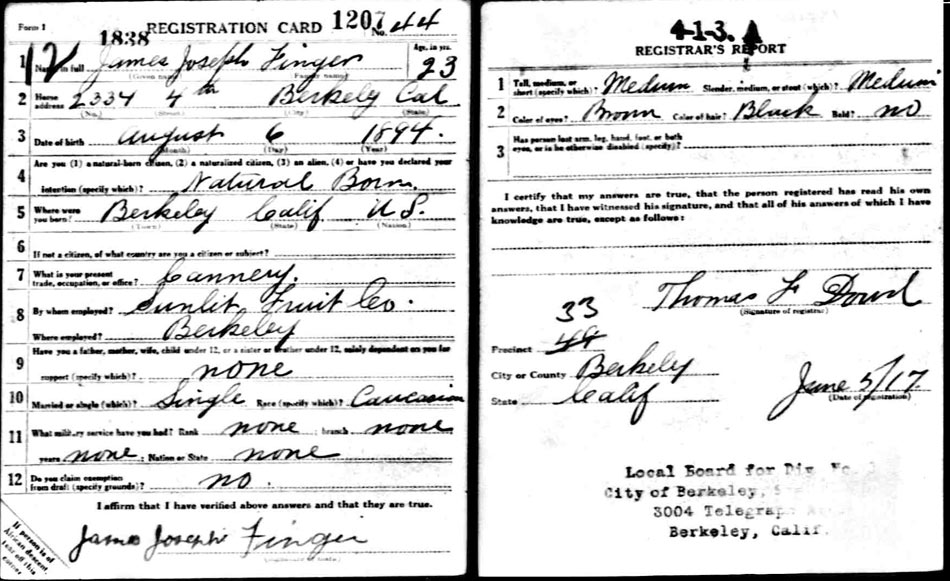 Form 1
1838
REGISTRATION CARD
1207
No. 44
1 Name in full James Joseph Finger Age, in yrs. 23
(Given name) (Family name)
2 Home address 2334 4th Berkely Cal
(No.) (Street) (City) (State)
3 Date of birth August 6 1894.
(Month) (Day) (Year)
4 Are you (1) a natural-born citizen, (2) a naturalized citizen, (3) an alien, (4) or have you declared your
intention (specify which)? Natural Born.
5 Where were you born? Berkeley Calif. U S.
(Town) (State) (Nation)
6 If not a citizen, of what country are you a citizen or subject?
7 What is your present trade, occupation, or office? Cannery.
8 By whom employed? Sunlit Fruit Co.
Where employed? Berkeley
9 Have you a father, mother, wife, child under 12, or a sister or brother under 12, solely dependent on you for
support (specify which)? none
10 Married or single (which)? Single Race (specify which)? Caucasion
11 What military service have you had? Rank none ; branch none
years none ; Nation or State none
12 Do you claim exemption from draft (specify grounds)? no.
I affirm that I have verified above answers and that they are true.
James Joseph Finger
If person is of
African descent,
tear off this
corner
4-1-3. A
REGISTRAR'S REPORT
1 Tall, medium, or short (specify which)? Medium Slender, medium, or stout (which)? Medium
2 Color of eyes? Brown Color of hair? Black Bald? no
3 Has person lost arm, leg, hand, foot, or both
eyes, or is he otherwise disabled (specify)?
I certify that my answers are true, that the person registered has read his own
answers, that I have witnessed his signature, and that all of his answers of which I have
knowledge are true, except as follows:
Thomas F Dowd
(Signature of registrar)
33
Precinct 48
City or County Berkely
State Calif
June 5/17.
(Date of registration)
Local Board for Div. No.
City of Berkeley,
3004 Telegraph
Berkeley, Calif.